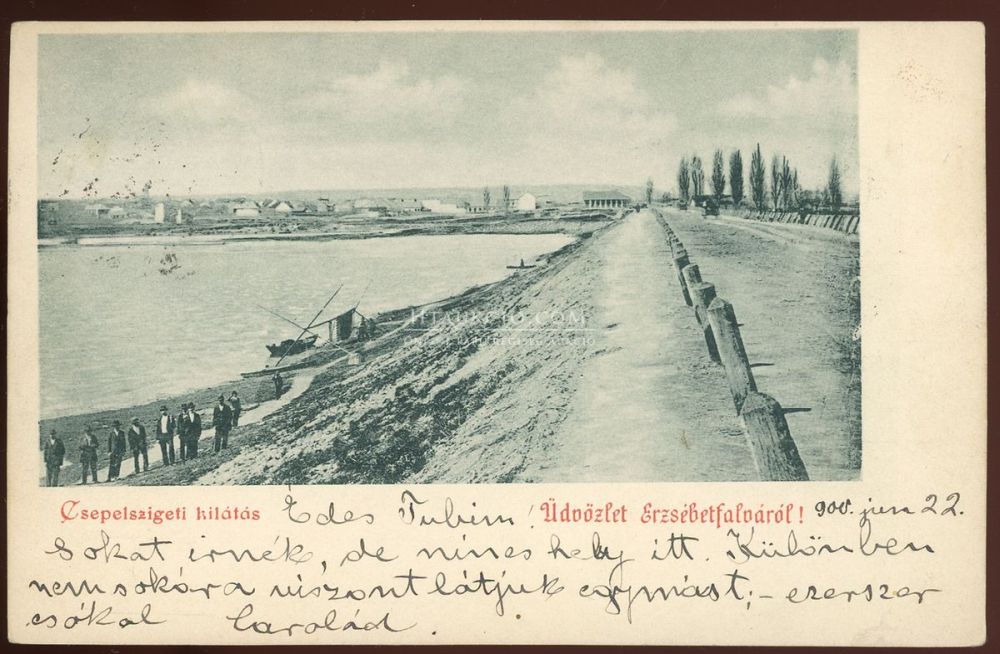 HEAUKCIO.COM
Csepelszigeti kilátás Édes Tubim! Üdvözlet Erzsébetfalváról! 900. jun 22.
Sokat irnék, de nincs hely itt. Különben
nemsokára viszontlátjuk egymást; – ezerszer
csókol Carolád.